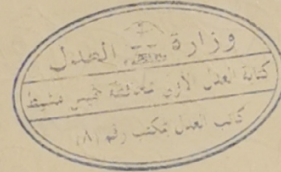 وزارة العدل
كتابة العدل الأولى بمحافظة خميس مشيط
كاتب العدل مكتب رقم (٨)